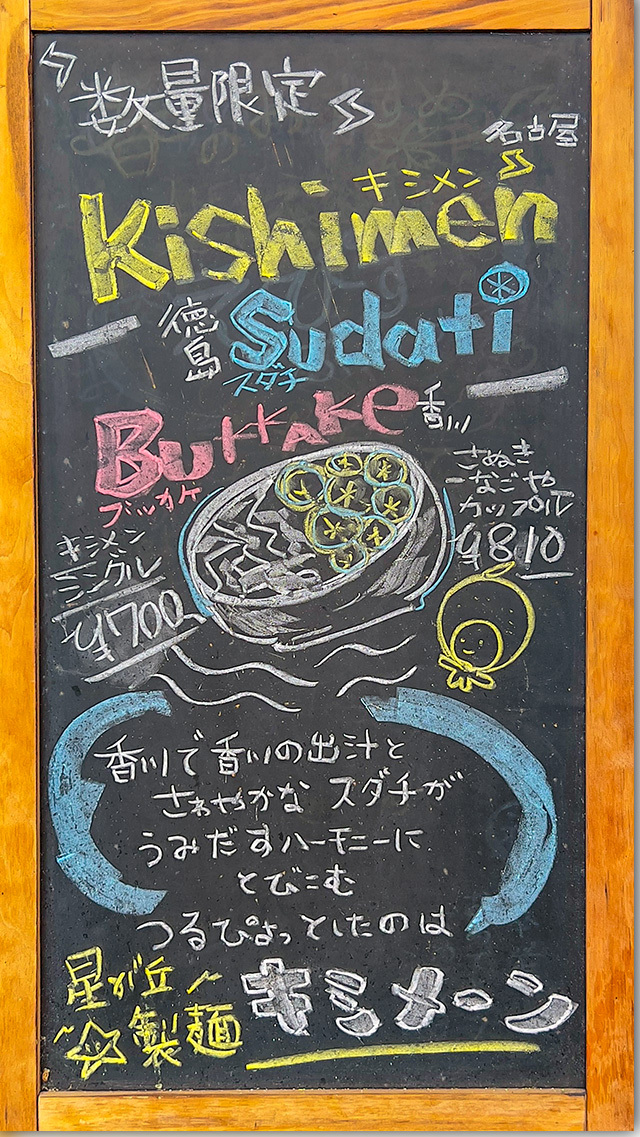 数量限定
名古屋
キシメン
Kishimen
徳島
Sudati
スダチ
BUKKAKe
香川
ブッカケ
さぬき
ーなごや
カップル
¥810
キシメン
シングル
¥700
香川で香川の出汁と
さわやかな スダチが
うみだすハーモニーに
とびこむ
つるぴょっとしたのは
キシメーン
星が丘
製麺